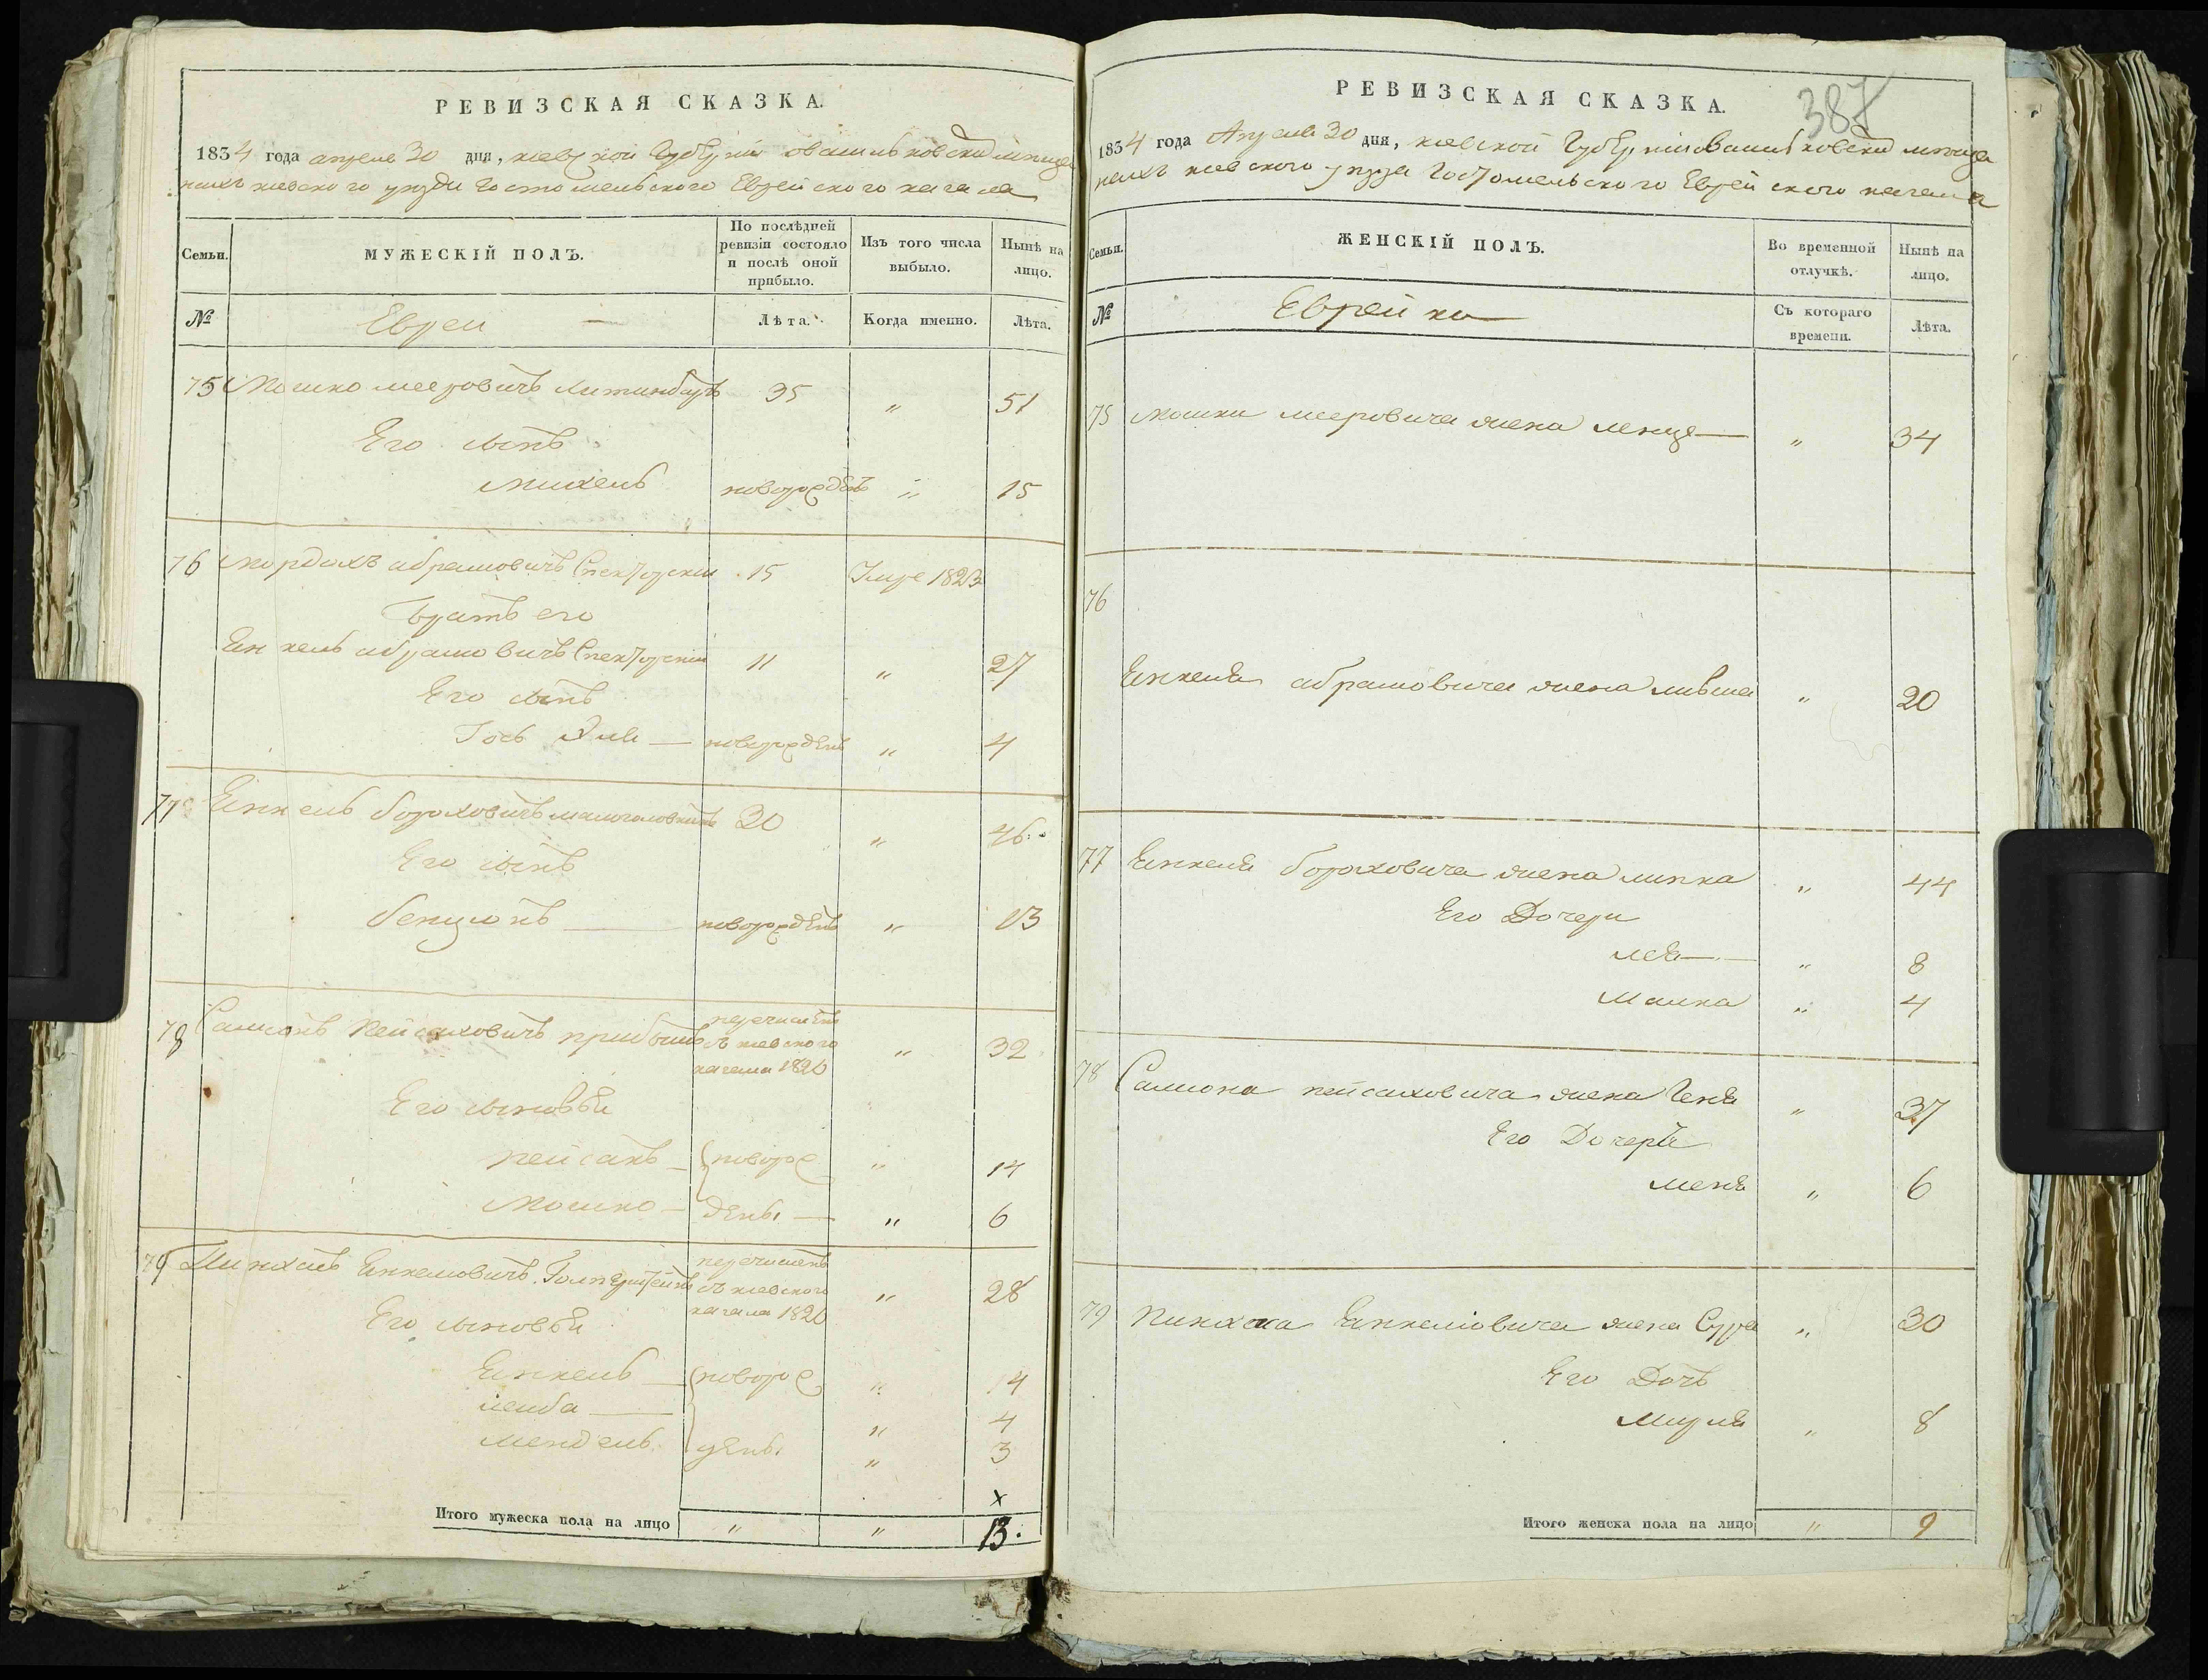 РЕВИЗСКАЯ СКАЗКА.
1834 года апреля 30 дня, киевской Губернии
киевского уезда Гостомельского Еврейского кагала
Семьи.
МУЖЕСКІЙ ПОЛЪ.
По послѣдней ревизіи состояло и послѣ оной прибыло.
Изъ того числа выбыло.
Нынѣ на лицо.
№
Евреи
Лѣта.
Когда именно.
Лѣта.
75 Мошко Мееровичъ 35 " 51
Его сынъ
Михель новорожденъ " 15
76 Мордахъ Абрамовичъ Спекторский 15 Умре 1823
Братъ его
Еинкель Абрамовичъ Спекторский 11 " 27
Его сынъ
новорожденъ " 4
77 Еинкель Бороховичъ 30 " 46
Его сынъ
Бенционъ новорожденъ " 13
78 Самсонъ Пейсаховичъ перечисленъ съ киевского кагала 1820 " 32
Его сыновья
Пейсахъ новорож " 14
Мошко дены " 6
79 Пинхасъ Еинкелевичъ перечисленъ съ киевского кагала 1820 " 28
Его сыновья
Еинкель новорож " 14
Лейба " 4
Мендель дены " 3
х
Итого мужеска пола на лицо " " 13.
РЕВИЗСКАЯ СКАЗКА.
387
1834 года Апреля 30 дня, киевской Губернии
киевского уезда Гостомельского Еврейского кагала
Семьи.
ЖЕНСКІЙ ПОЛЪ.
Во временной отлучкѣ.
Нынѣ на лицо.
№
Еврейки
Съ котораго времени.
Лѣта.
75 Мошки Мееровича жена " 34
76
Еинкеля Абрамовича жена Ливша " 20
77 Еинкеля Бороховича жена " 44
Его Дочери
Лея " 8
Малка " 4
78 Самсона Пейсаховича жена Геня " 37
Его Дочерь
" 6
79 Пинхаса Еинкелиовича жена Сура " 30
Его Дочь
Мирля " 8
Итого женска пола на лицо " 9